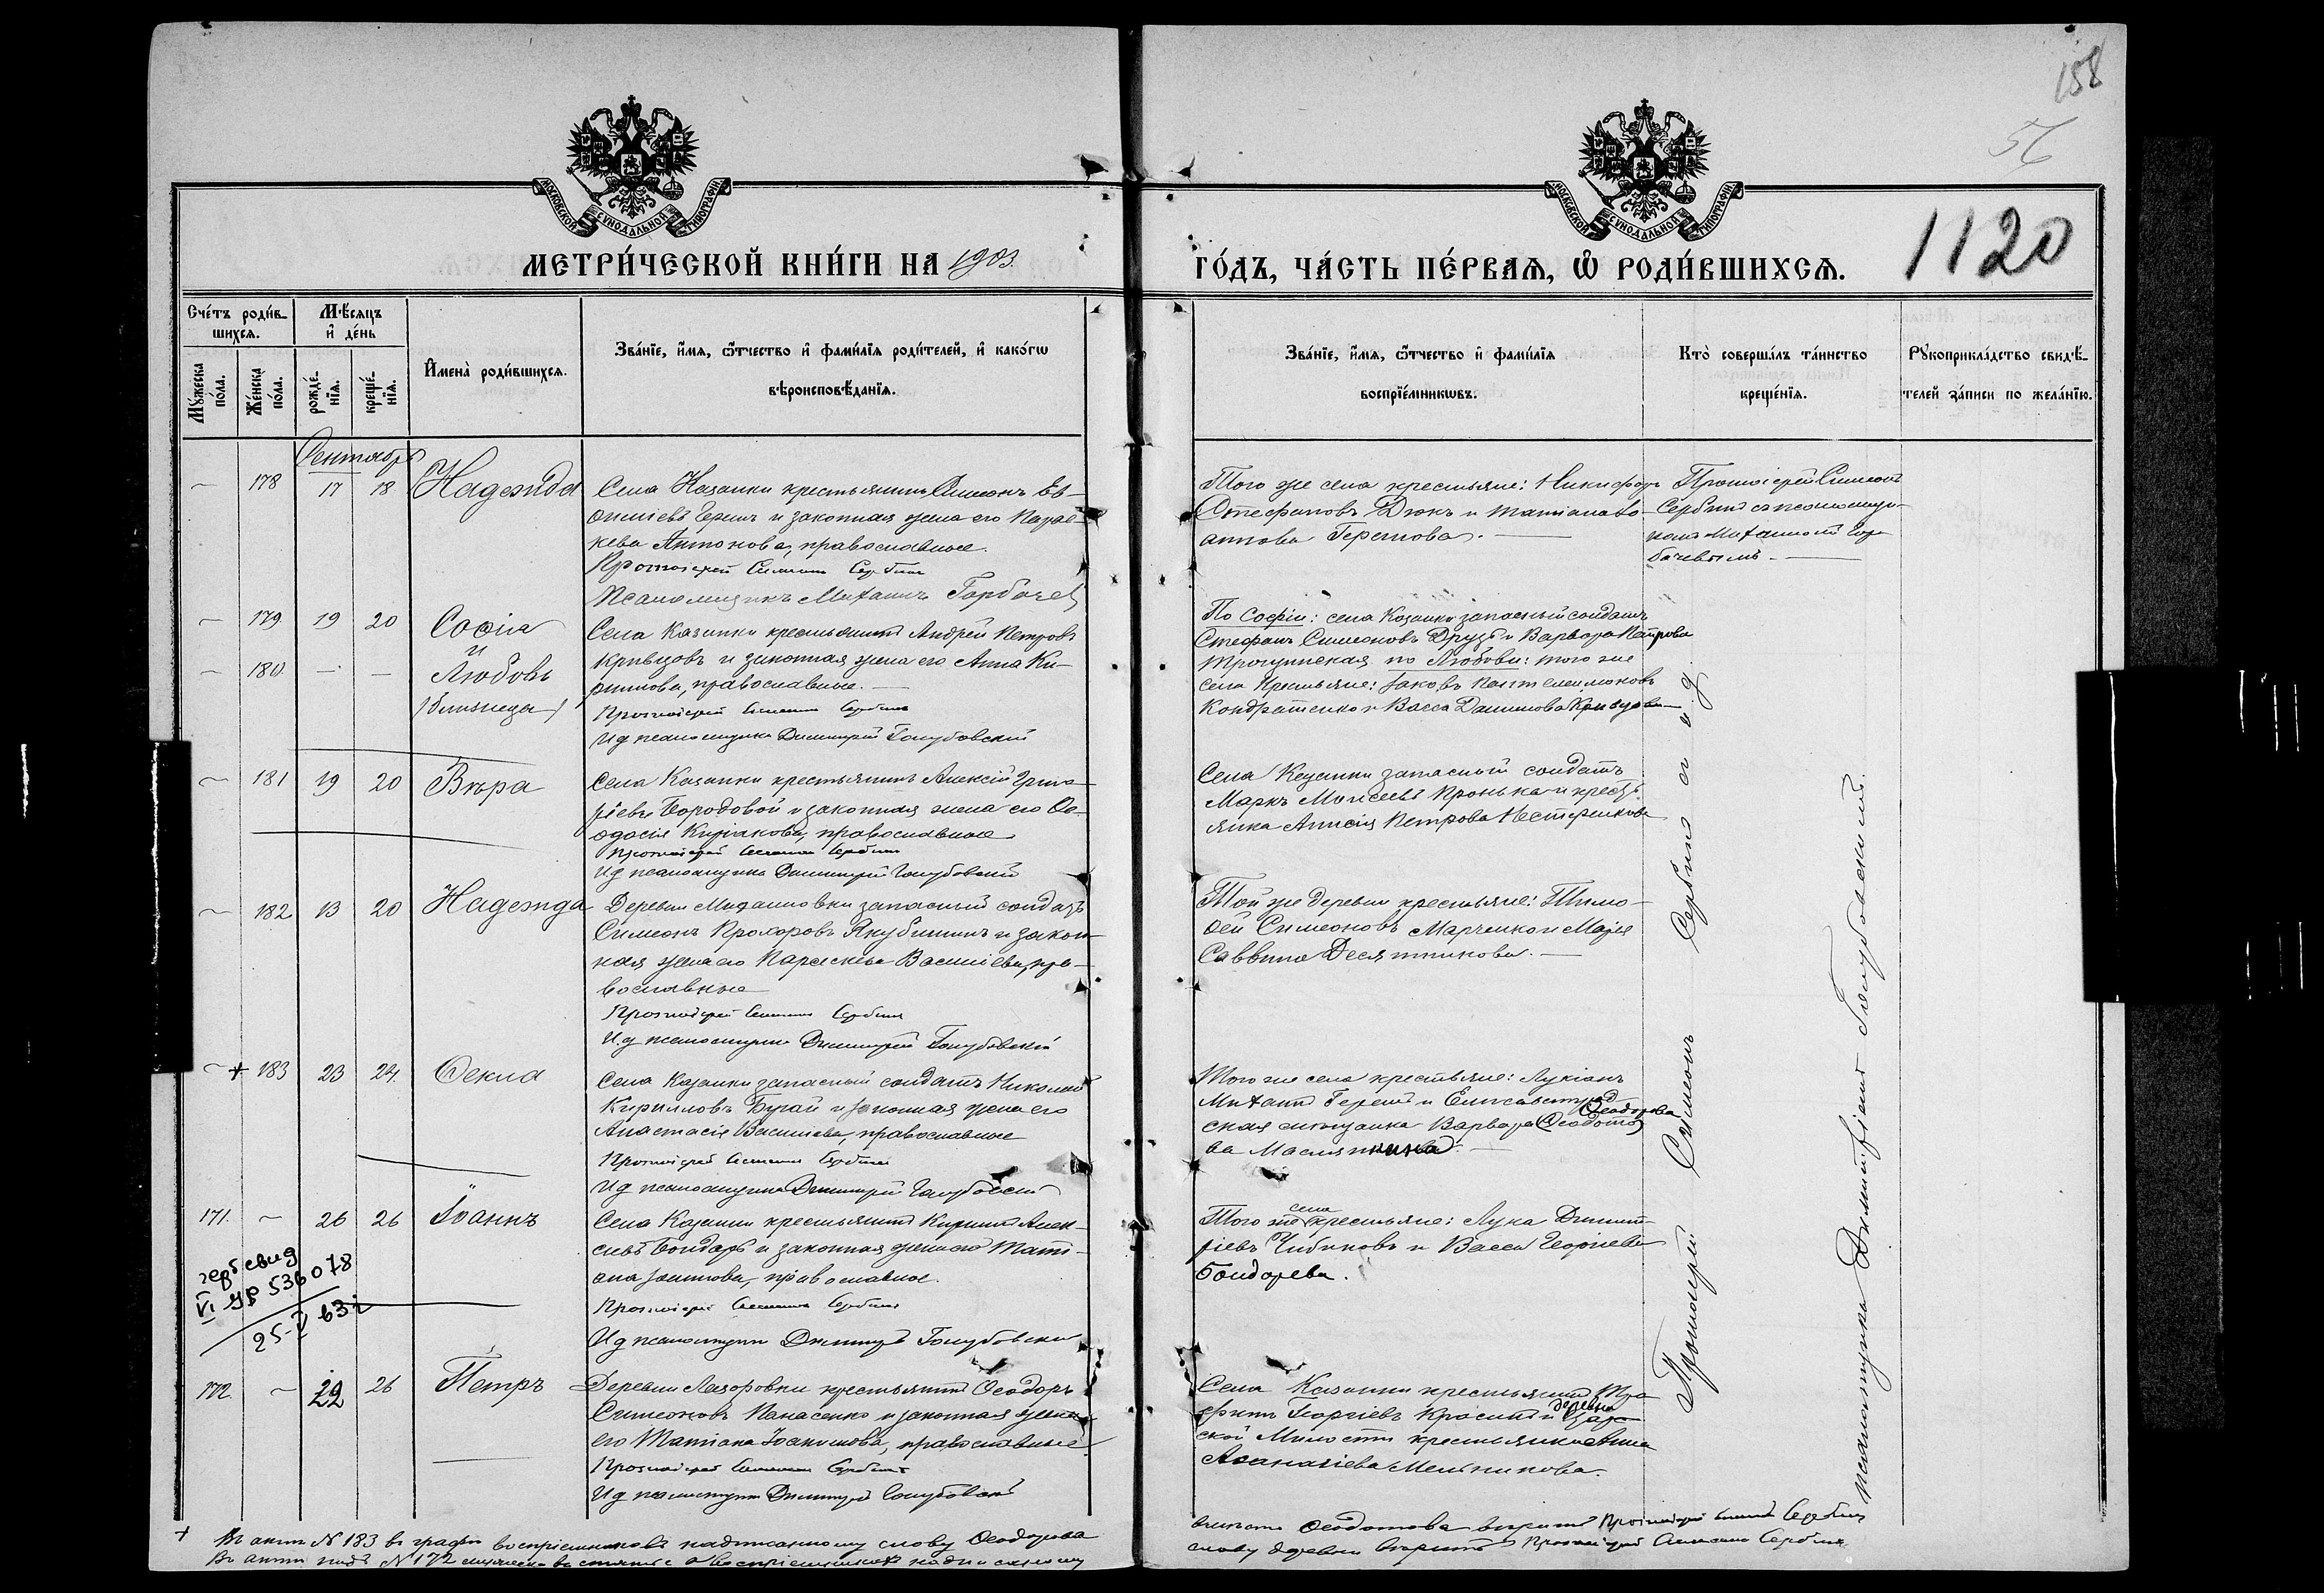 158
56
1120
МОСКОВСКОЙ СУНОДАЛЬНОЙ ТИПОГРАФІИ
МОСКОВСКОЙ СУНОДАЛЬНОЙ ТИПОГРАФІИ
МЕТРИ́ЧЕСКОЙ КНИ́ГИ НА 1903.
ГО́ДЪ, ЧА́СТЬ ПЕ́РВАЯ, Ѡ РОДИ́ВШИХСЯ.
Сче́тъ роди́в-
шихся.
Мѣ́сяцъ
и де́нь
Мꙋ́жеска
по́ла.
Же́нска
по́ла.
рожде́-
нїя.
креще́-
нїя.
Имена̀ роди́вшихся.
Зва́нїе, и́мя, ѻ҆́тчество и фами́лїя роди́телей, и како́гѡ
вѣроисповѣ́данїя.
Зва́нїе, и́мя, ѻ҆́тчество и фами́лїя
воспрїе́мникѡвъ.
Кто̀ соверша́лъ та́инство
креще́нїя.
Рꙋкоприкла́дство свидѣ́-
телей за́писи по жела́нїю.
Сентябрь
178 17 18 Надежда
Села Казанки крестьянинъ Симеонъ Ев-
ѳиміевъ Герешъ и законная жена его Парас-
кева Антонова, православные.
Протоіерей Симеонъ Сербинъ
Псаломщикъ Михаилъ Горбачев
Того же села крестьяне: Никифоръ
Стефановъ Дюкъ и Татіана Іо-
аннова Герешова.
Протоіерей Симеонъ
Сербинъ съ псаломщи-
комъ Михаиломъ Гор-
бачевымъ.
179 19 20 Софіа
и
180. — — Любовь
/близнецы/
Села Казанки крестьянинъ Андрей Петровъ
Кривцовъ и законная жена его Анна Ки-
риллова, православные.
Протоіерей Симеонъ Сербинъ
Ид псаломщика Димитрій Голубовскій
По Софіи: села Казанки запасный солдатъ
Стефанъ Симеоновъ Друзь и Варвара Петрова
по Любови: того же
села крестьяне: Іаковъ Пантелеимоновъ
Кондратенко и Васса Данилова Кривцова
181 19 20 Вѣра
Села Казанки крестьянинъ Алексій Григо-
ріевъ Бородовой и законная жена его Ѳе-
одосія Киріакова, православные
Протоіерей Симеонъ Сербинъ
Ид псаломщика Димитрій Голубовскій
Села Казанки запасный солдатъ
Маркъ Моисеевъ Пронька и кресть-
янка Анисія Петрова Нестеренкова
182 13 20 Надежда
Деревни Михайловки запасный солдатъ
Симеонъ Прохоровъ Якубишинъ и закон-
ная жена его Параскева Василіева, пра-
вославные
Протоіерей Симеонъ Сербинъ
И.д псаломщика Димитрій Голубовскій
Той же деревни крестьяне: Тимо-
ѳей Симеоновъ Марченко и Марія
Саввина Десятникова.
+ 183 23 24. Ѳекла
Села Казанки запасный солдатъ Николай
Кирилловъ Бугай и законная жена его
Анастасія Василіева, православные
Протоіерей Симеонъ Сербинъ
Ид псаломщика Димитрій Голубовскій
Того же села крестьяне: Лукіанъ
Михаиловъ Герешъ и Елисаветград-
ская мѣщанка Варвара (Ѳеодото- Ѳеодорова
ва Маслянникова.
171. 26 26 Іоаннъ
Села Казанки крестьянинъ Кириллъ Алек-
сіевъ Бондарь и законная жена его Тати-
ана Іоаннова, православные.
Протоіерей Симеонъ Сербинъ
Ид псаломщика Димитрій Голубовскій
Того же села крестьяне: Лука Димит-
ріевъ Чибиковъ и Васса Георгіева
Бондарева.
VI 536078
172. 29 26 Петръ
Деревни Лазоровки крестьянинъ Ѳеодоръ
Симеоновъ Панасенко и законная жена
его Татіана Іоакимова, православные
Протоіерей Симеонъ Сербинъ
Ид псаломщика Димитрій Голубовскій
Села Казанки крестьянинъ Тро-
фимъ Георгіевъ Красий и деревни Цар-
ской Милости крестьянка Анна
Аѳанасіева Мельникова.
Протоіерей Симеонъ Сербинъ съ и д
псаломщика Димитріемъ Голубовскимъ.
+ Въ актѣ № 183 въ графѣ воспріемниковъ надписанному слову Ѳеодорова
вмѣсто Ѳеодотова вѣрить Протоіерей Симеонъ Сербинъ
Въ актѣ подъ № 172 о воспріемникахъ надписанному
слову деревни вѣрить Протоіерей Симеонъ Сербинъ